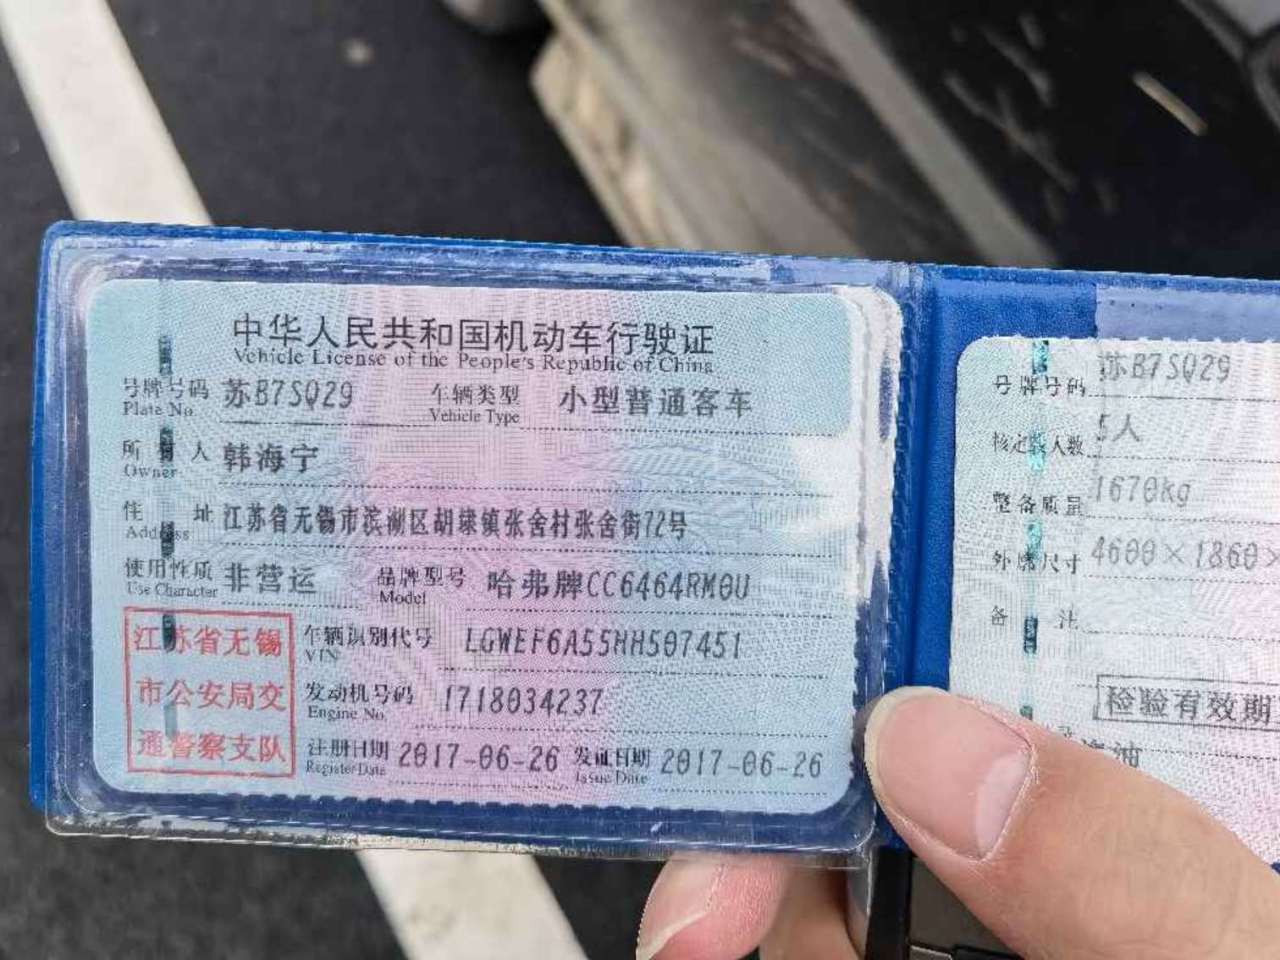 中华人民共和国机动车行驶证
Vehicle License of the People's Republic of China
号牌号码 苏B7SQ29 车辆类型 小型普通客车
Plate No. Vehicle Type
所 人 韩海宁
Owner
住 址 江苏省无锡市滨湖区胡埭镇张舍村张舍街72号
Address
使用性质 非营运 品牌型号 哈弗牌CC6464RM0U
Use Character Model
江苏省无锡
市公安局交
通警察支队
车辆识别代号 LGWEF6A55HH507451
VIN
发动机号码 1718034237
Engine No.
注册日期 2017-06-26 发证日期 2017-06-26
Register Date Issue Date
号牌号码 苏B7SQ29
核定载人数 5人
整备质量 1670kg
外廓尺寸 4600×1860×
备 注
检验有效期
油